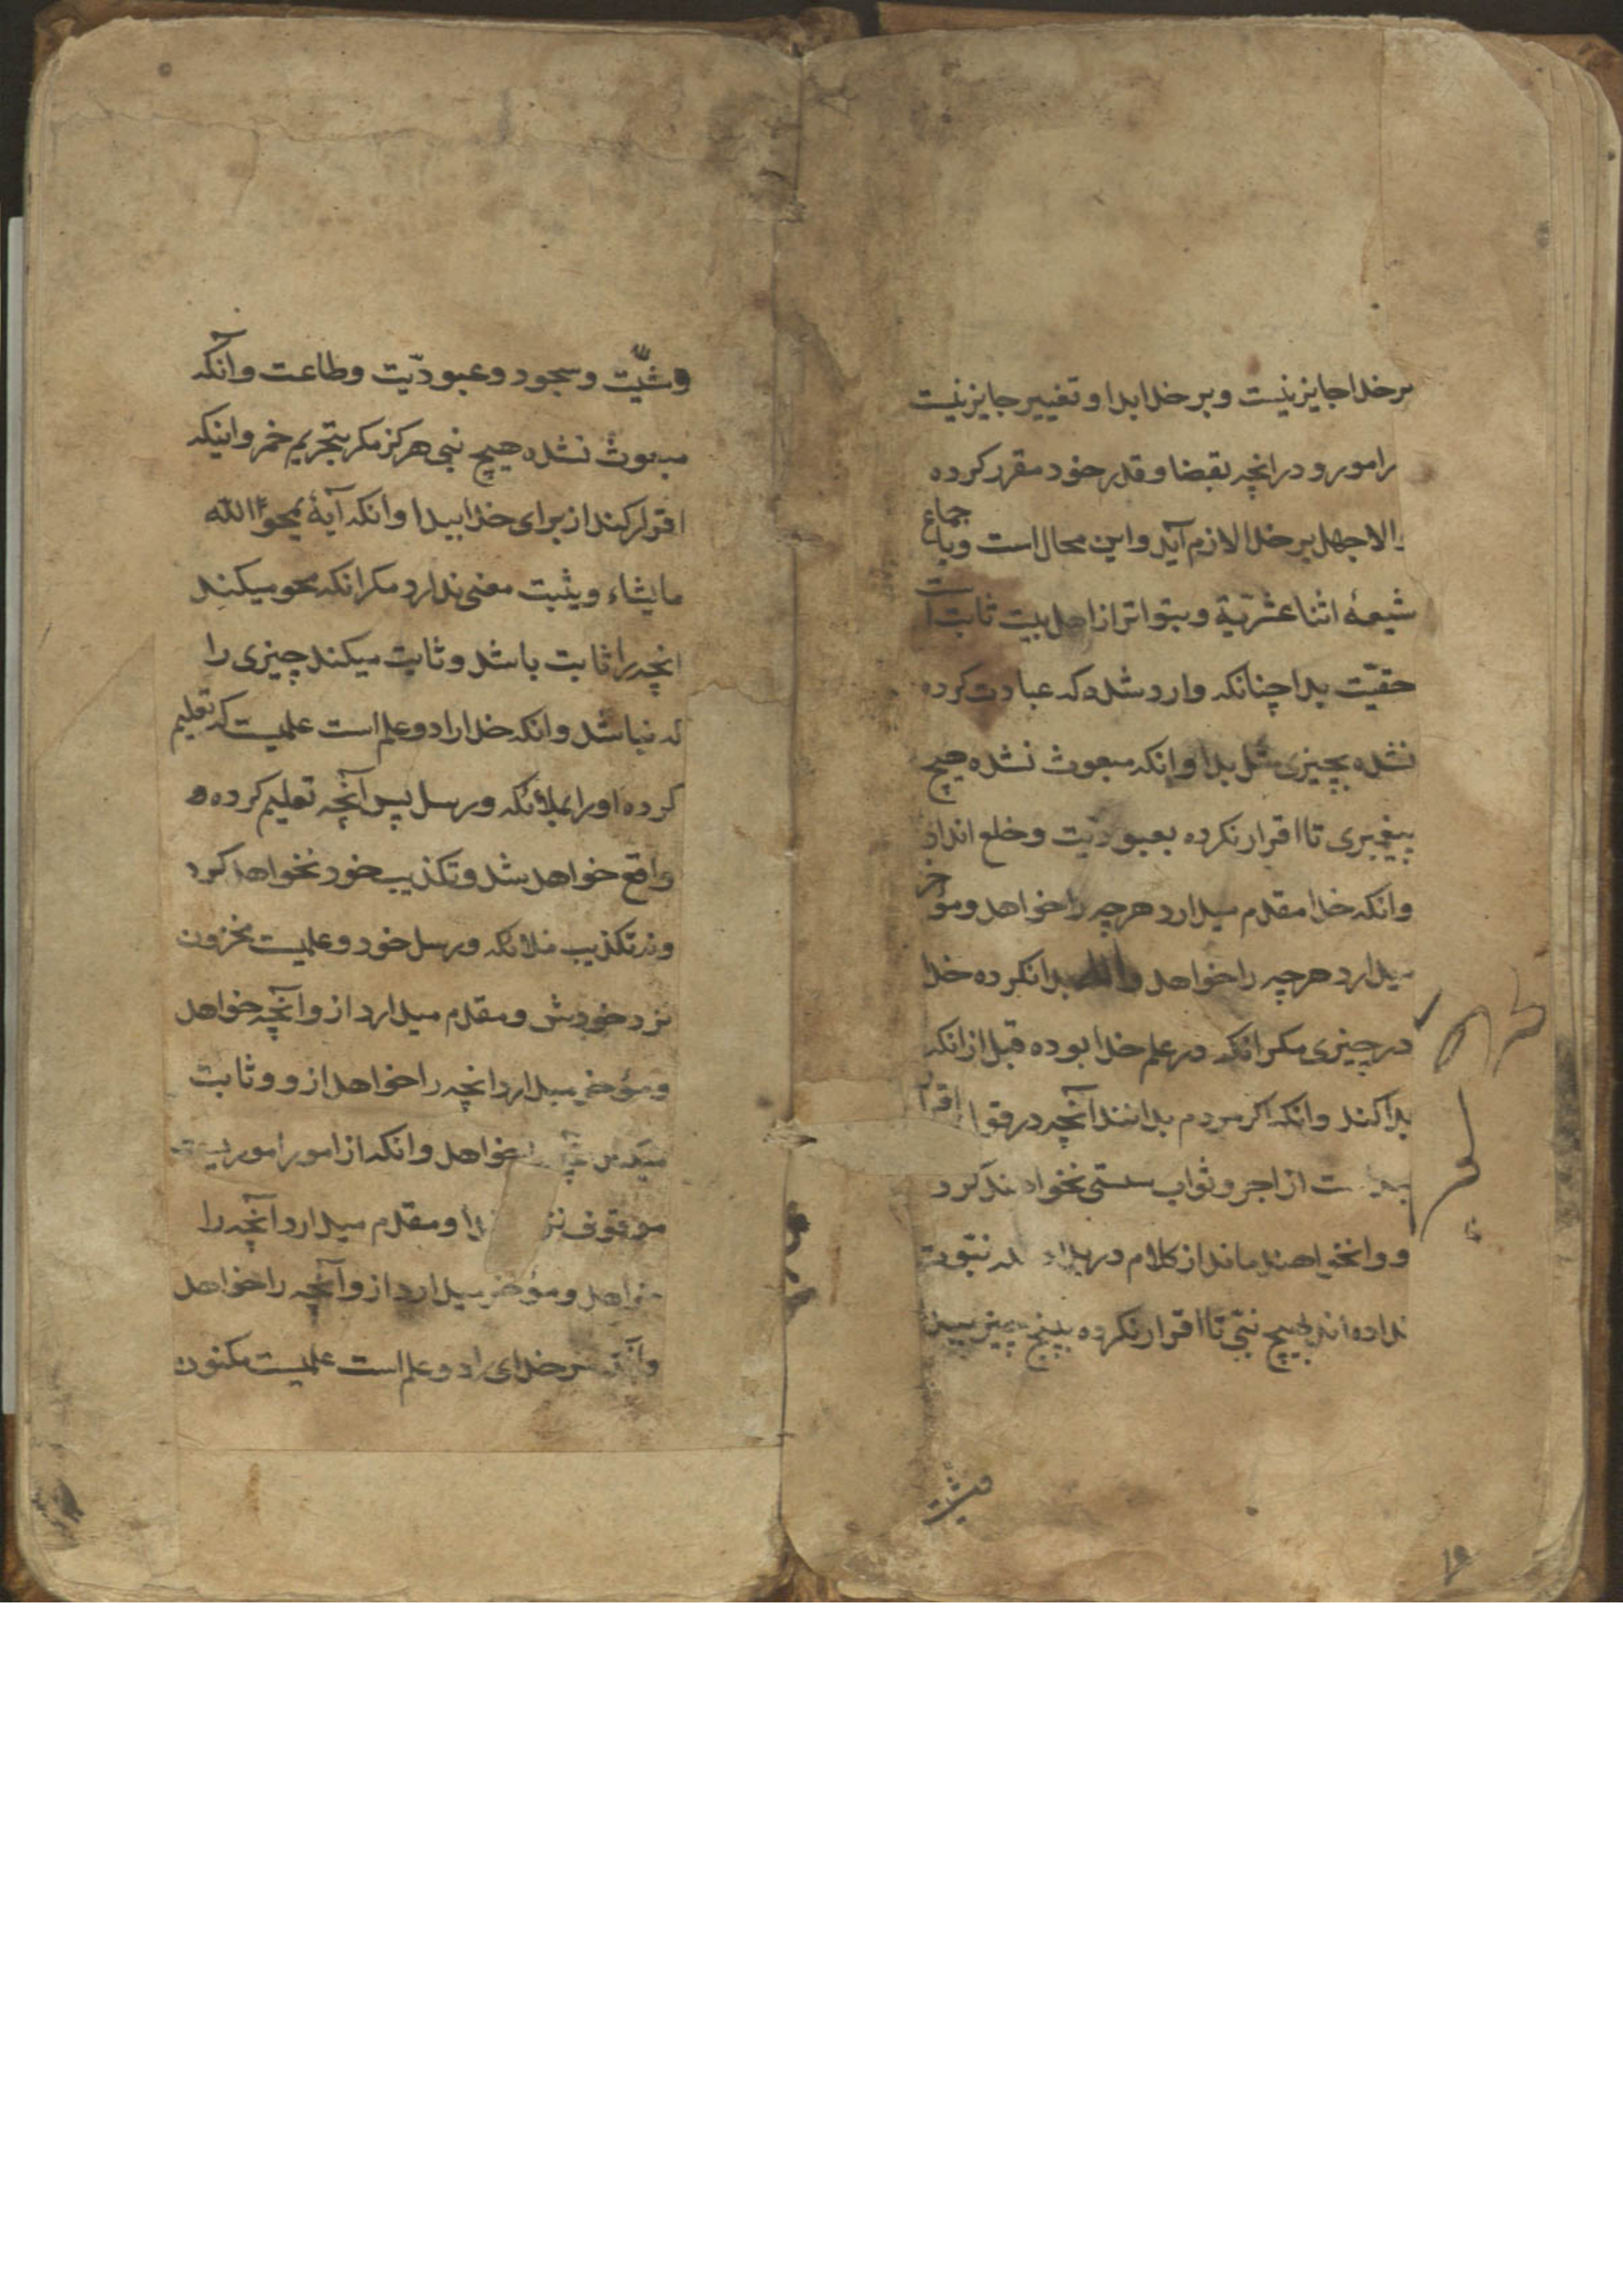 بر خدا جایز نیست و بر خدا بدا و تغییر جایز نیست
را مورو در انچه بقضا و قدر خود مقرر کرده
والا جهل بر خدا لازم آید و این محال است و باجماع
شیعهٔ اثنا عشریّة و بتواتر از اهل بیت ثابت است
حقیّت بدا چنانکه وارد شده که عبادت کرده
نشده بچیزی مثل بدا و انکه مبعوث نشده هیچ
پیغمبری تا اقرار نکرده بعبودیّت و خلع انداد
و انکه خدا مقدم میدارد هرچه را خواهد و مؤخر
میدارد هرچه را خواهد بدا نکرده خدا
در چیزی مکر انکه در علم خدا بوده قبل از انکه
بدا کند و انکه اکر مردم بدانند آنچه در
از اجر و ثواب سستی نخواهند کرد
و وا نخواهند ماند از کلام در نبّوت
نداده اند بهیچ نبّی تا اقرار نکرده بپنج چیز
مشیّت
۱۹
و مشیّت و سجود و عبودیّت و طاعت و آنکه
مبعوث نشده هیچ نبی هرکز مکر بتحریم خمر و اینکه
اقرار کند از برای خدا ببدا و انکه آیهٔ یمحوا الله
ما یشاء و یثبت معنی ندارد مکر انکه محو میکند
انچه را ثابت باشد و ثابت میکند چیزی را
که نباشد و انکه خدا را دو علم است علمیست که تعلیم
کرده او را بملائکه و رسل پس آنچه تعلیم کرده
واقع خواهد شد و تکذیب خود نخواهد کرد
و نه تکذیب ملائکه و رسل خود و علمیست مخزون
نزد خودش و مقدم میدارد از و آنچه خواهد
و مؤخر میدارد انچه را خواهد از و و ثابت
خواهد و انکه از امور اموریست
موقوف نزد خدا و مقدم میدارد آنچه را
خواهد و مؤخر میدارد از و آنچه را خواهد
و آنکه مر خدای را دو علم است علمیست مکنون